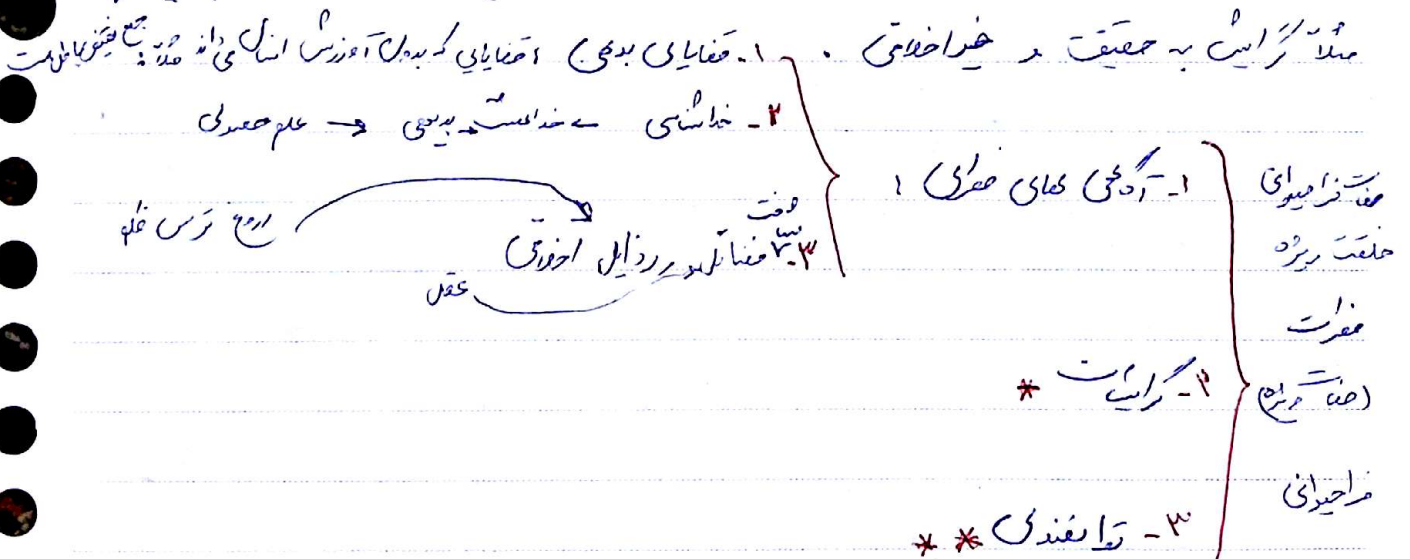 مثلاً گرایش به حقیقت و خیر اخلاقی .
۱- قضایای بدیهی ؛ قضایایی که بدون آموزش انسان می داند مثلاً: جمع نقیضین باطل است
۲- خداشناسی ← خدا هست بدیهی ← علم حصولی
۳- فضائل و رذایل اخلاقی
عقل
۱- آگاهی های فطری :
۲- گرایشات *
۳- توانمندی * *
صفات فراحیوانی
خلقت ویژه
فطرت
(صفات ویژه)
فراحیوانی